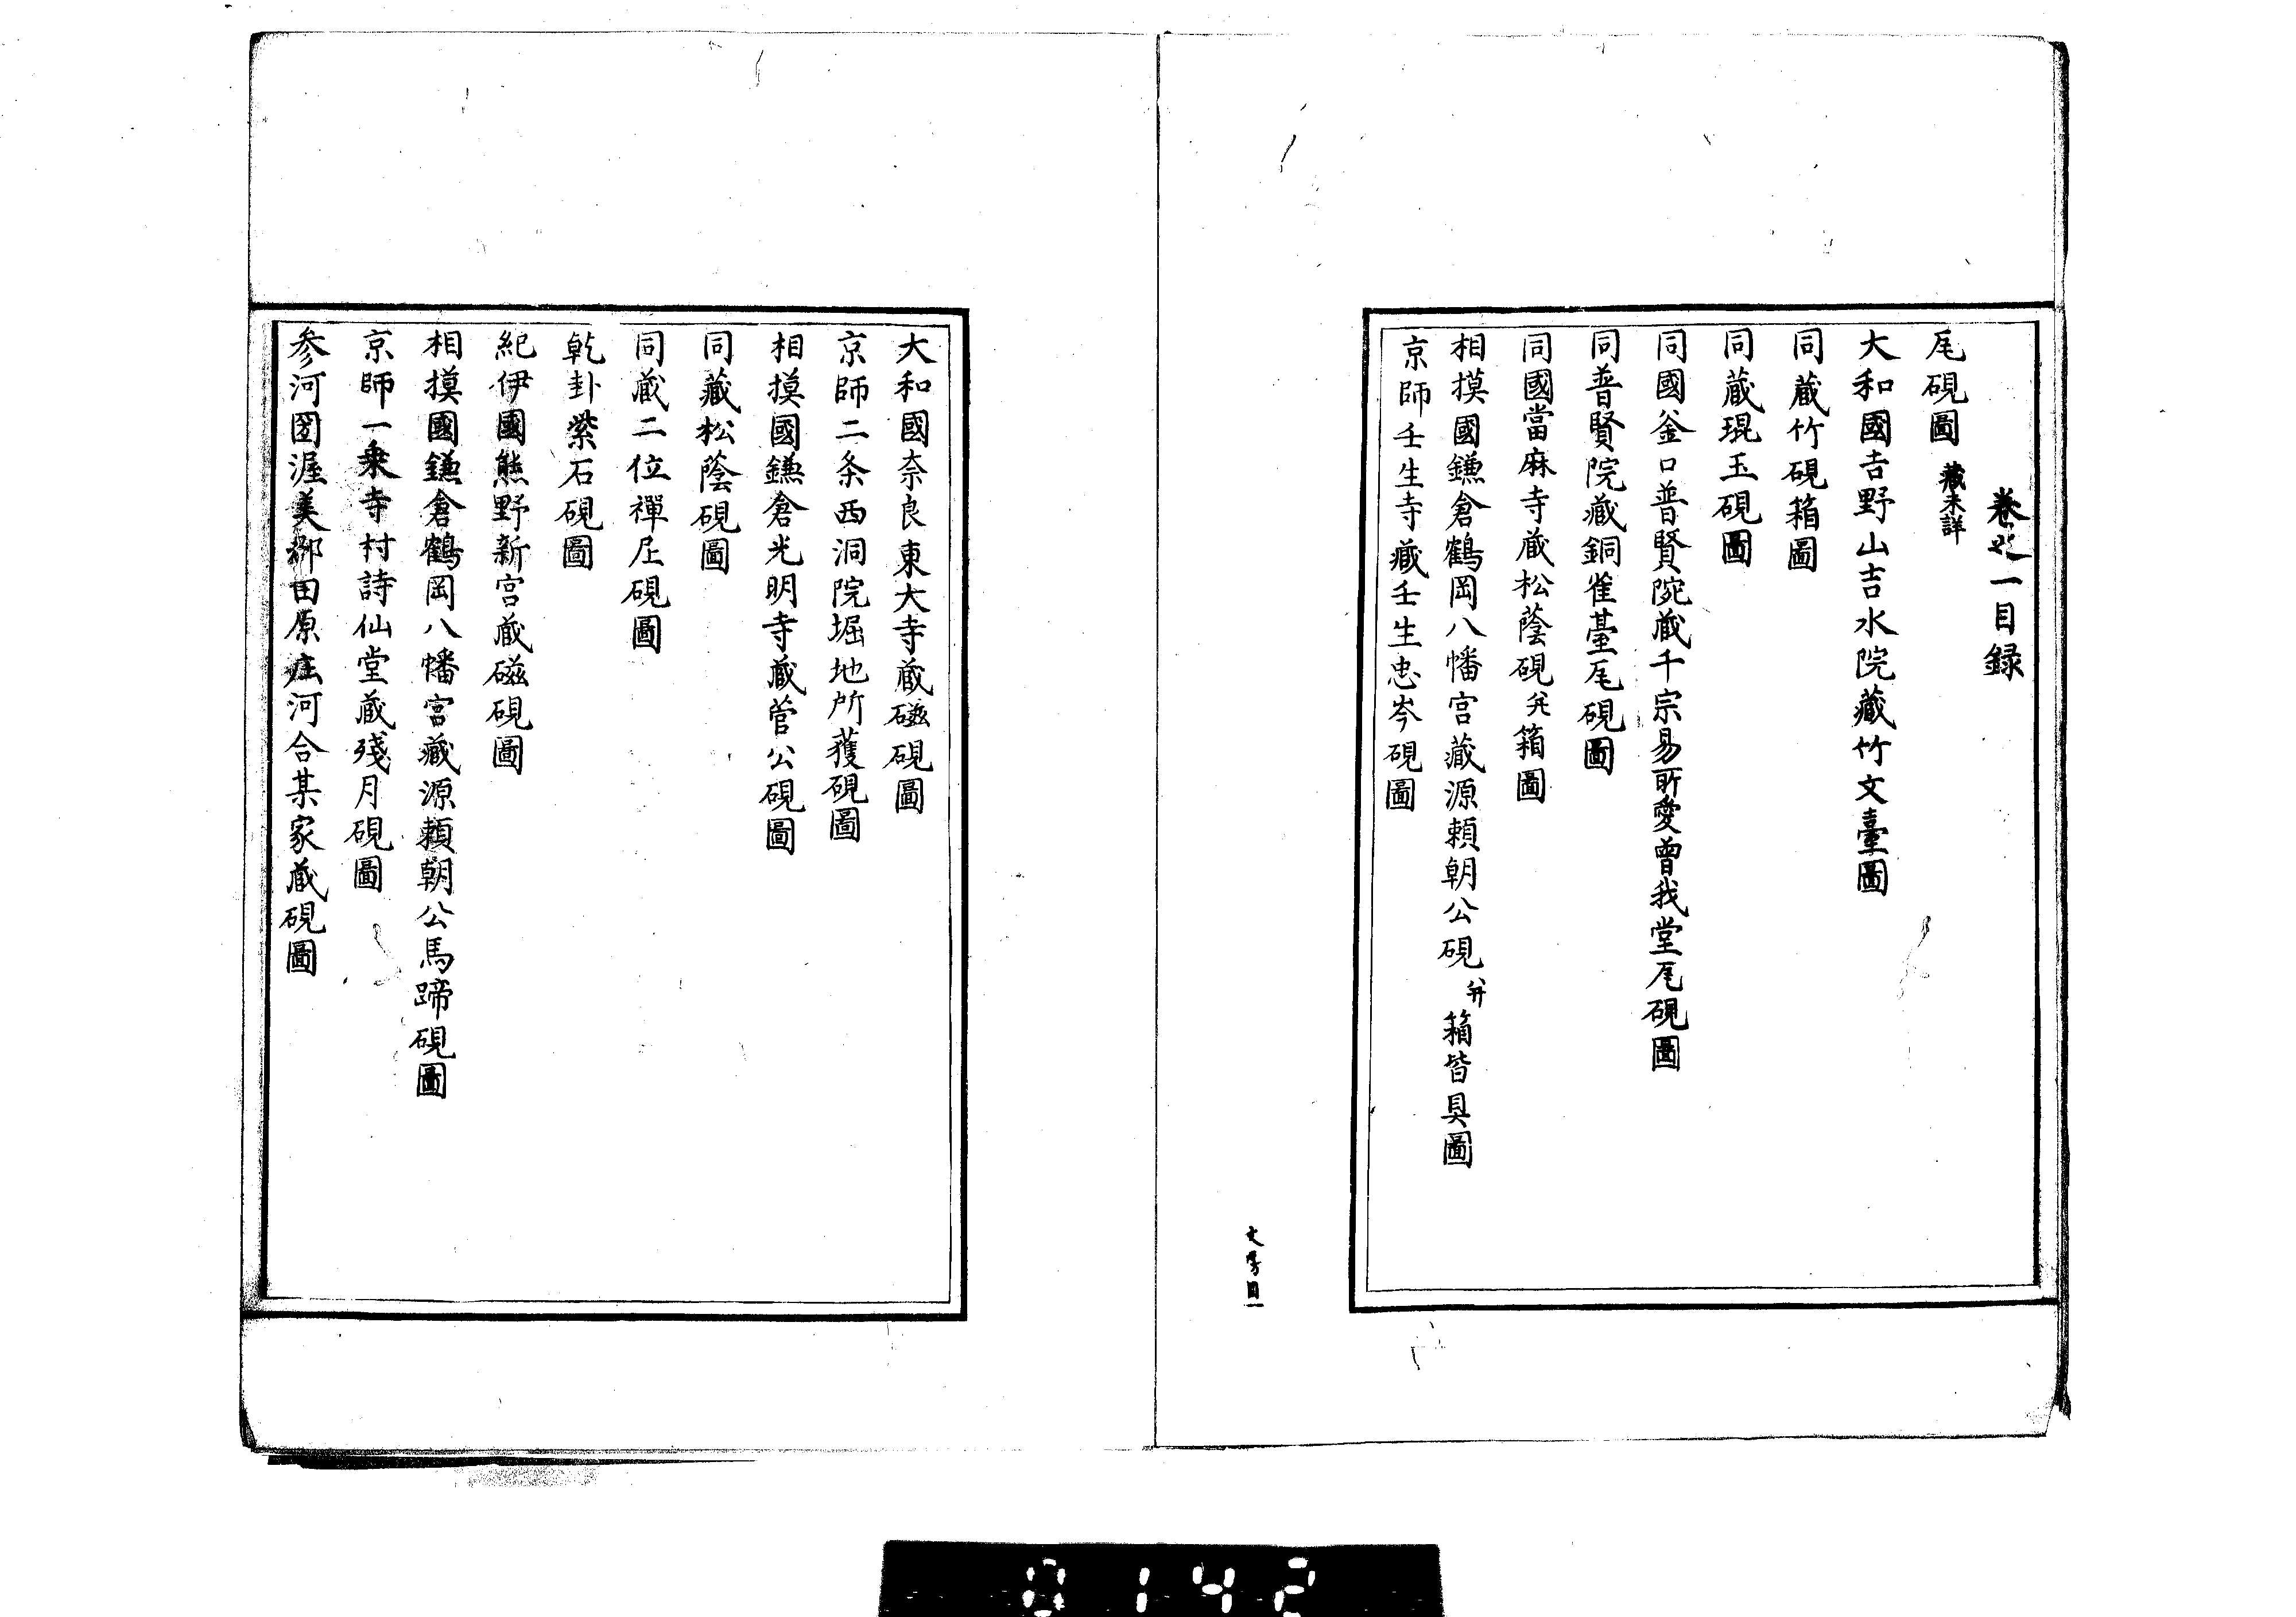 巻之一目録
瓦硯圖 藏未詳
大和國吉野山吉水院藏竹文臺圖
同藏竹硯箱圖
同藏琨玉硯圖
同國釜口普賢院藏千宗易所愛曾我堂瓦硯圖
同普賢院藏銅雀臺瓦硯圖
同國當麻寺藏松蔭硯并箱圖
相摸國鎌倉鶴岡八幡宮藏源頼朝公硯并箱皆具圖
京師壬生寺藏壬生忠岑硯圖
文房目一
大和國奈良東大寺藏磁硯圖
京師二条西洞院堀地所獲硯圖
相摸國鎌倉光明寺藏菅公硯圖
同藏松蔭硯圖
同藏二位禪尼硯圖
乾卦紫石硯圖
紀伊國熊野新宮藏磁硯圖
相摸國鎌倉鶴岡八幡宮藏源頼朝公馬蹄硯圖
京師一乘寺村詩仙堂藏殘月硯圖
参河国渥美郡田原庄河合某家藏硯圖
0142